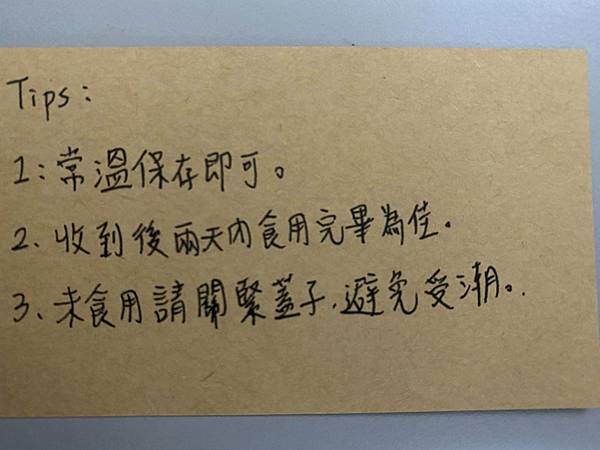 Tips:
1:常溫保存即可。
2、收到後兩天內食用完畢為佳。
3、未食用請關緊蓋子,避免受潮。